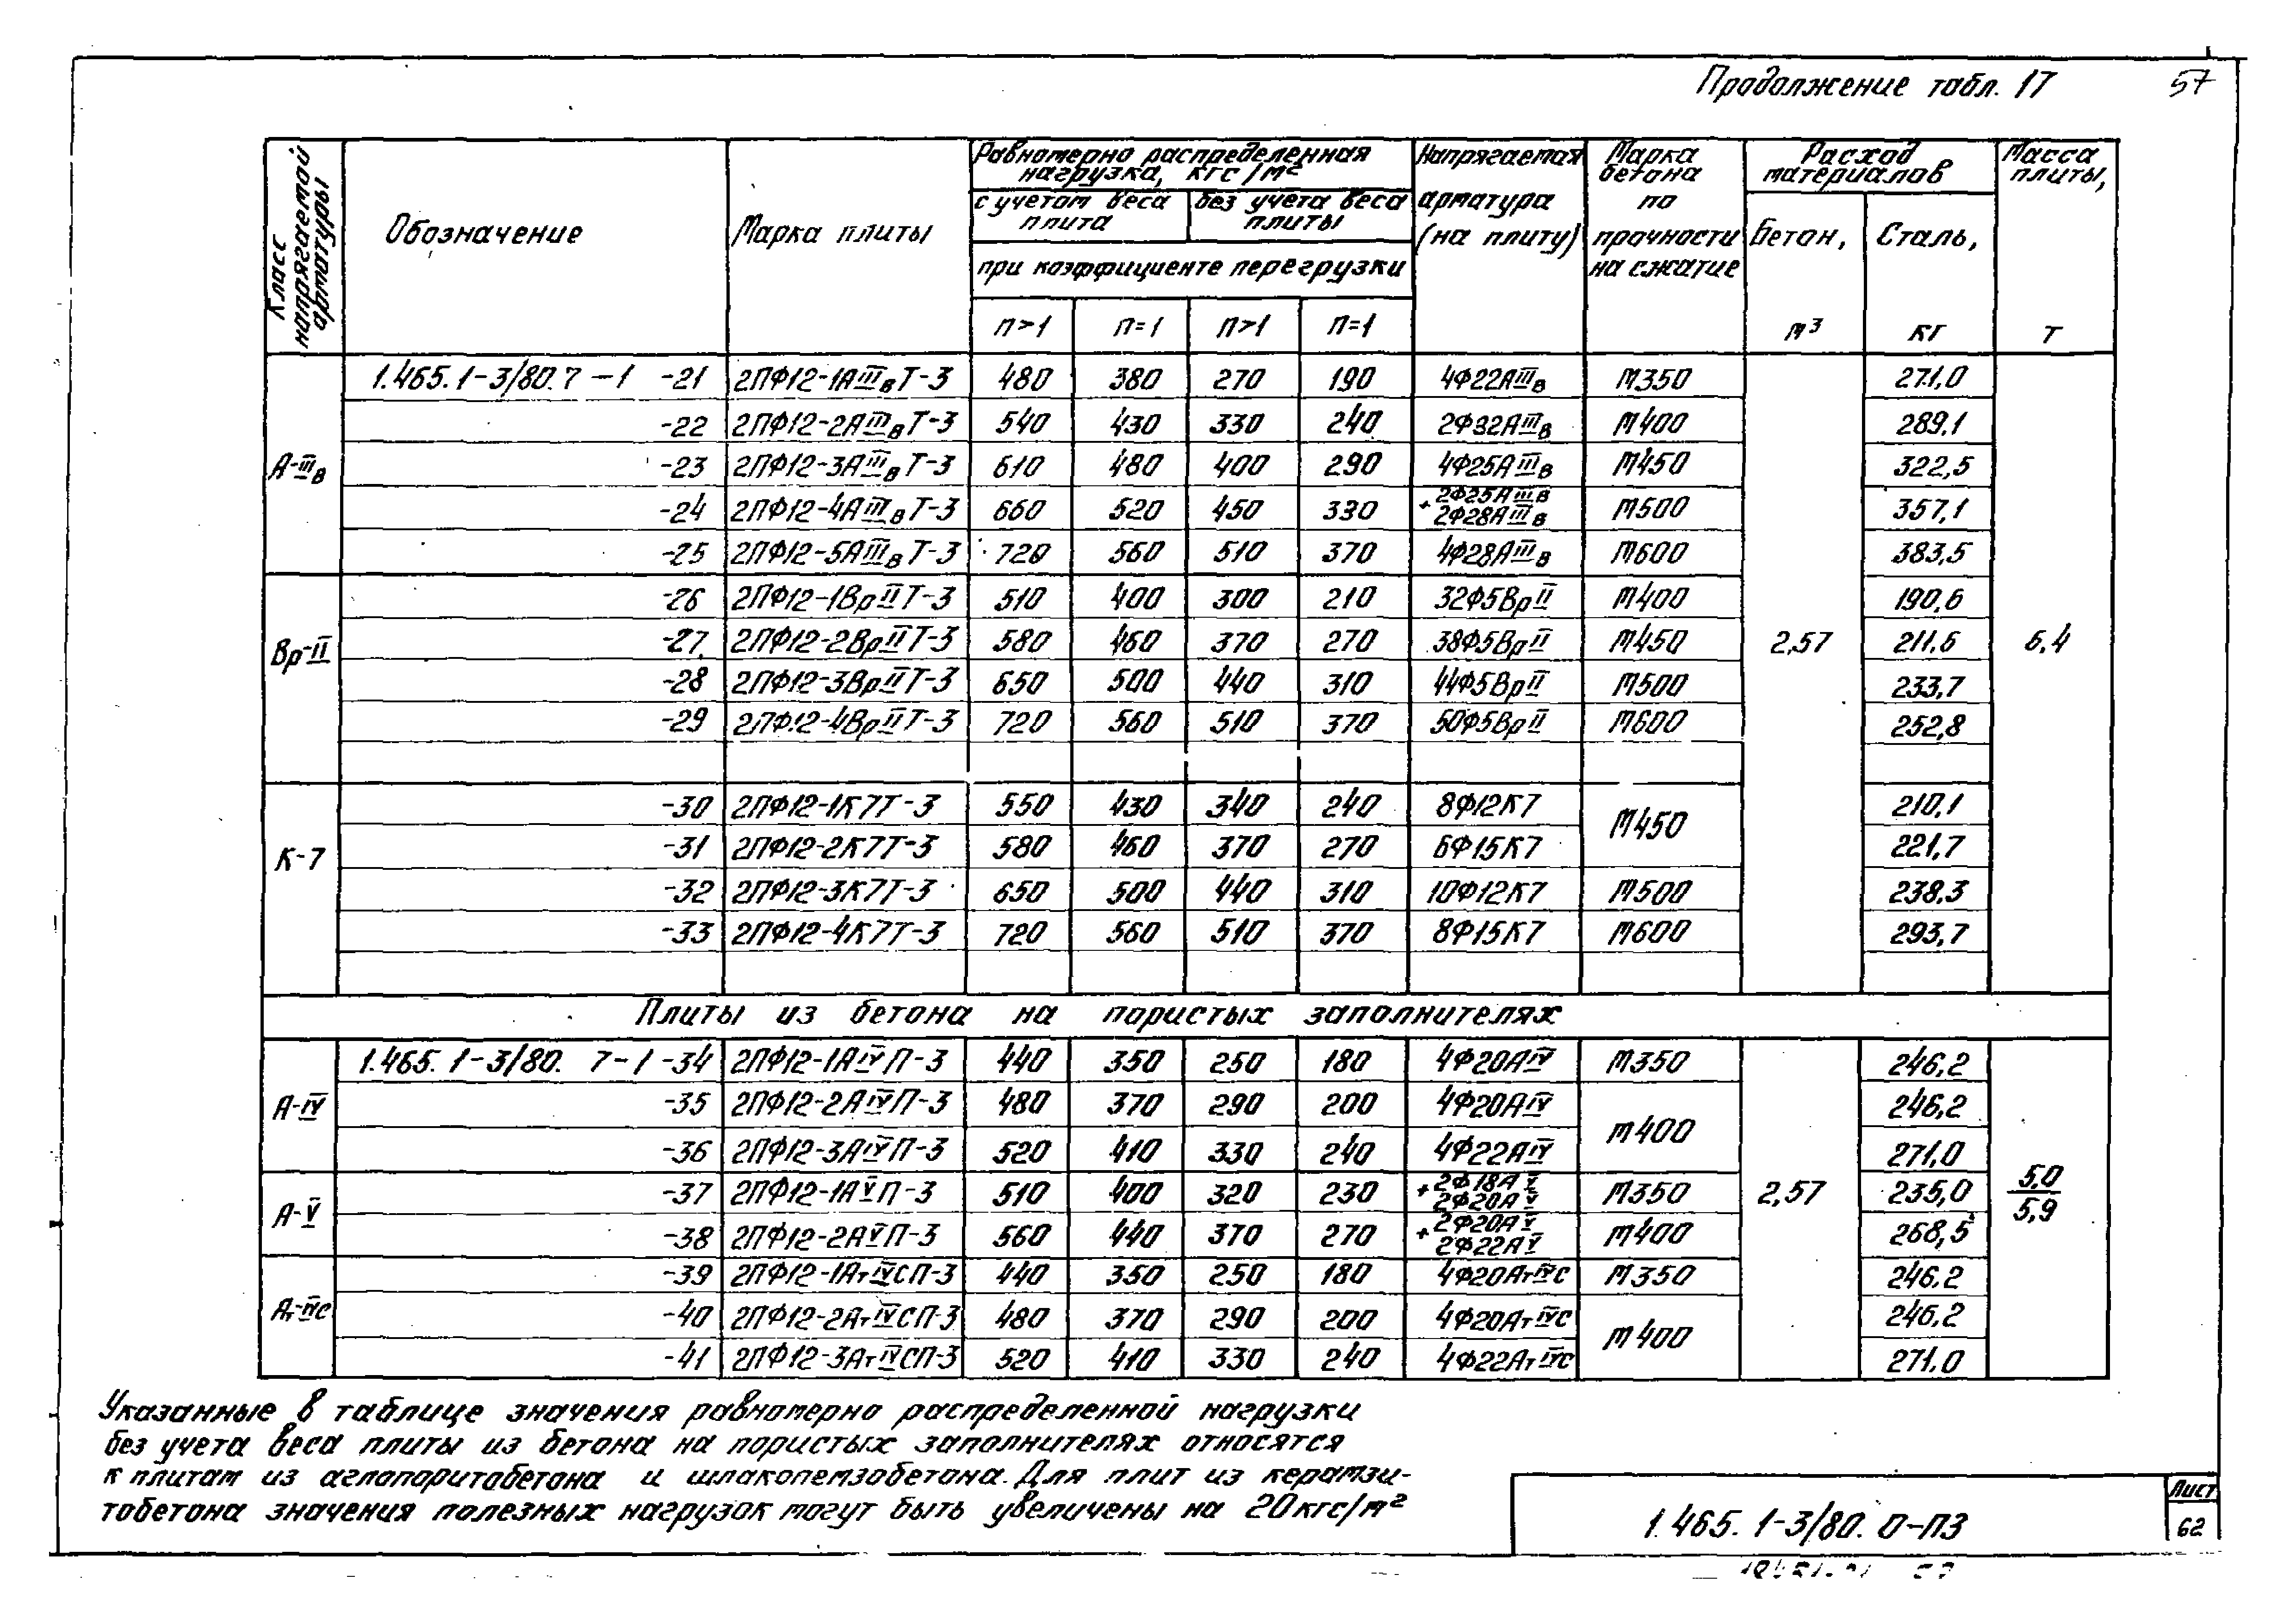 Продолжение табл. 17 57
Класс напрягаемой арматуры
Обозначение
Марка плиты
Равномерно распределенная нагрузка, кгс/м²
с учетом веса плита
без учета веса плиты
при коэффициенте перегрузки
п>1 п=1 п>1 п=1
Напрягаемая арматура (на плиту)
Марка бетона по прочности на сжатие
Расход материалов
Бетон, м³
Сталь, кг
Масса плиты, т
А-IIIв
1.465.1-3/80.7-1 -21 2ПФ12-1АIIIвТ-3 480 380 270 190 4Ф22АIIIв М350 271,0
-22 2ПФ12-2АIIIвТ-3 540 430 330 240 2Ф32АIIIв М400 289,1
-23 2ПФ12-3АIIIвТ-3 610 480 400 290 4Ф25АIIIв М450 322,5
-24 2ПФ12-4АIIIвТ-3 660 520 450 330 2Ф25АIIIв + 2Ф28АIIIв М500 357,1
-25 2ПФ12-5АIIIвТ-3 720 560 510 370 4Ф28АIIIв М600 383,5
Вр-II
-26 2ПФ12-1ВрIIТ-3 510 400 300 210 32Ф5ВрII М400 190,6
-27 2ПФ12-2ВрIIТ-3 580 460 370 270 38Ф5ВрII М450 2,57 211,6 6,4
-28 2ПФ12-3ВрIIТ-3 650 500 440 310 44Ф5ВрII М500 233,7
-29 2ПФ12-4ВрIIТ-3 720 560 510 370 50Ф5ВрII М600 252,8
К-7
-30 2ПФ12-1К7Т-3 550 430 340 240 8Ф12К7 М450 210,1
-31 2ПФ12-2К7Т-3 580 460 370 270 6Ф15К7 221,7
-32 2ПФ12-3К7Т-3 650 500 440 310 10Ф12К7 М500 238,3
-33 2ПФ12-4К7Т-3 720 560 510 370 8Ф15К7 М600 293,7
Плиты из бетона на пористых заполнителях
А-IV
1.465.1-3/80. 7-1 -34 2ПФ12-1АIVП-3 440 350 250 180 4Ф20АIV М350 246,2
-35 2ПФ12-2АIVП-3 480 370 290 200 4Ф20АIV М400 246,2
-36 2ПФ12-3АIVП-3 520 410 330 240 4Ф22АIV 271,0
А-V
-37 2ПФ12-1АVП-3 510 400 320 230 2Ф18АV + 2Ф20АV М350 2,57 235,0 5,0/5,9
-38 2ПФ12-2АVП-3 560 440 370 270 2Ф20АV + 2Ф22АV М400 268,5
Ат-IVс
-39 2ПФ12-1АтIVСП-3 440 350 250 180 4Ф20АтIVС М350 246,2
-40 2ПФ12-2АтIVСП-3 480 370 290 200 4Ф20АтIVС М400 246,2
-41 2ПФ12-3АтIVСП-3 520 410 330 240 4Ф22АтIVС 271,0
Указанные в таблице значения равномерно распределенной нагрузки
без учета веса плиты из бетона на пористых заполнителях относятся
к плитам из аглопоритобетона и шлакопемзобетона. Для плит из керамзи-
тобетона значения полезных нагрузок могут быть увеличены на 20кгс/м²
1.465.1-3/80. 0-ПЗ
Лист
62